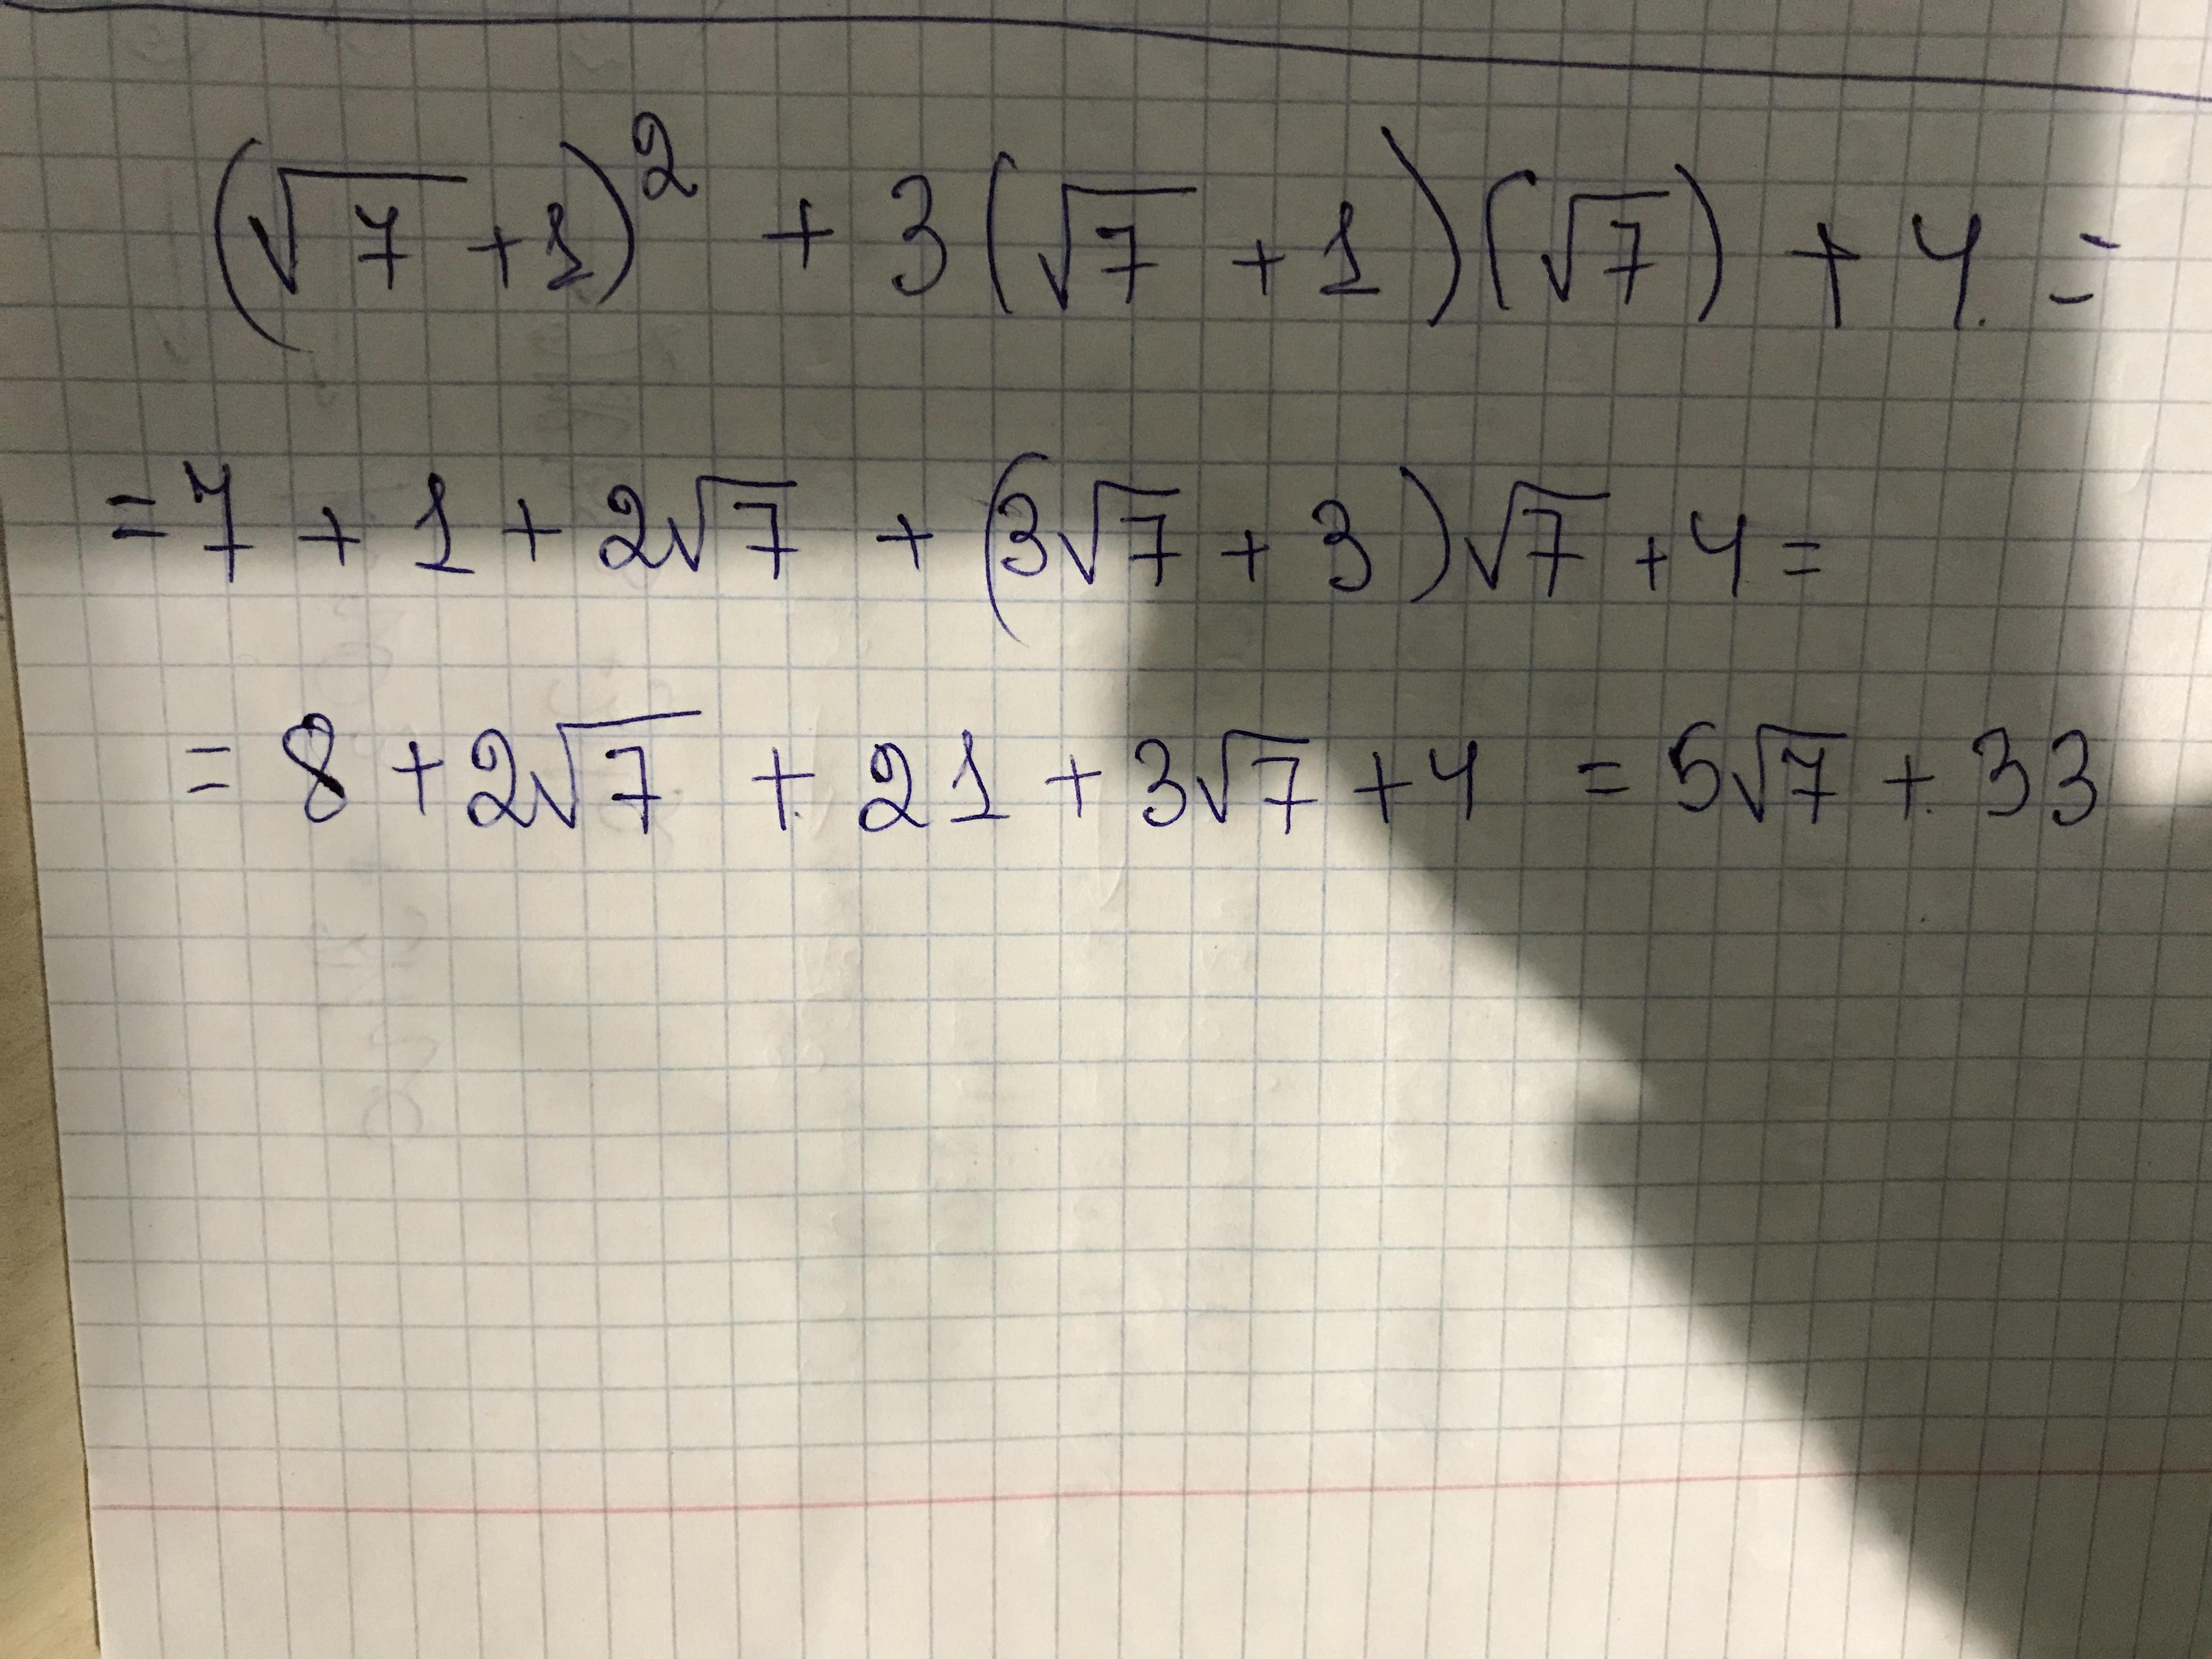 (√7 + 1)² + 3(√7 + 1)(√7) + 4 =
= 7 + 1 + 2√7 + (3√7 + 3)√7 + 4 =
= 8 + 2√7 + 21 + 3√7 + 4 = 5√7 + 33